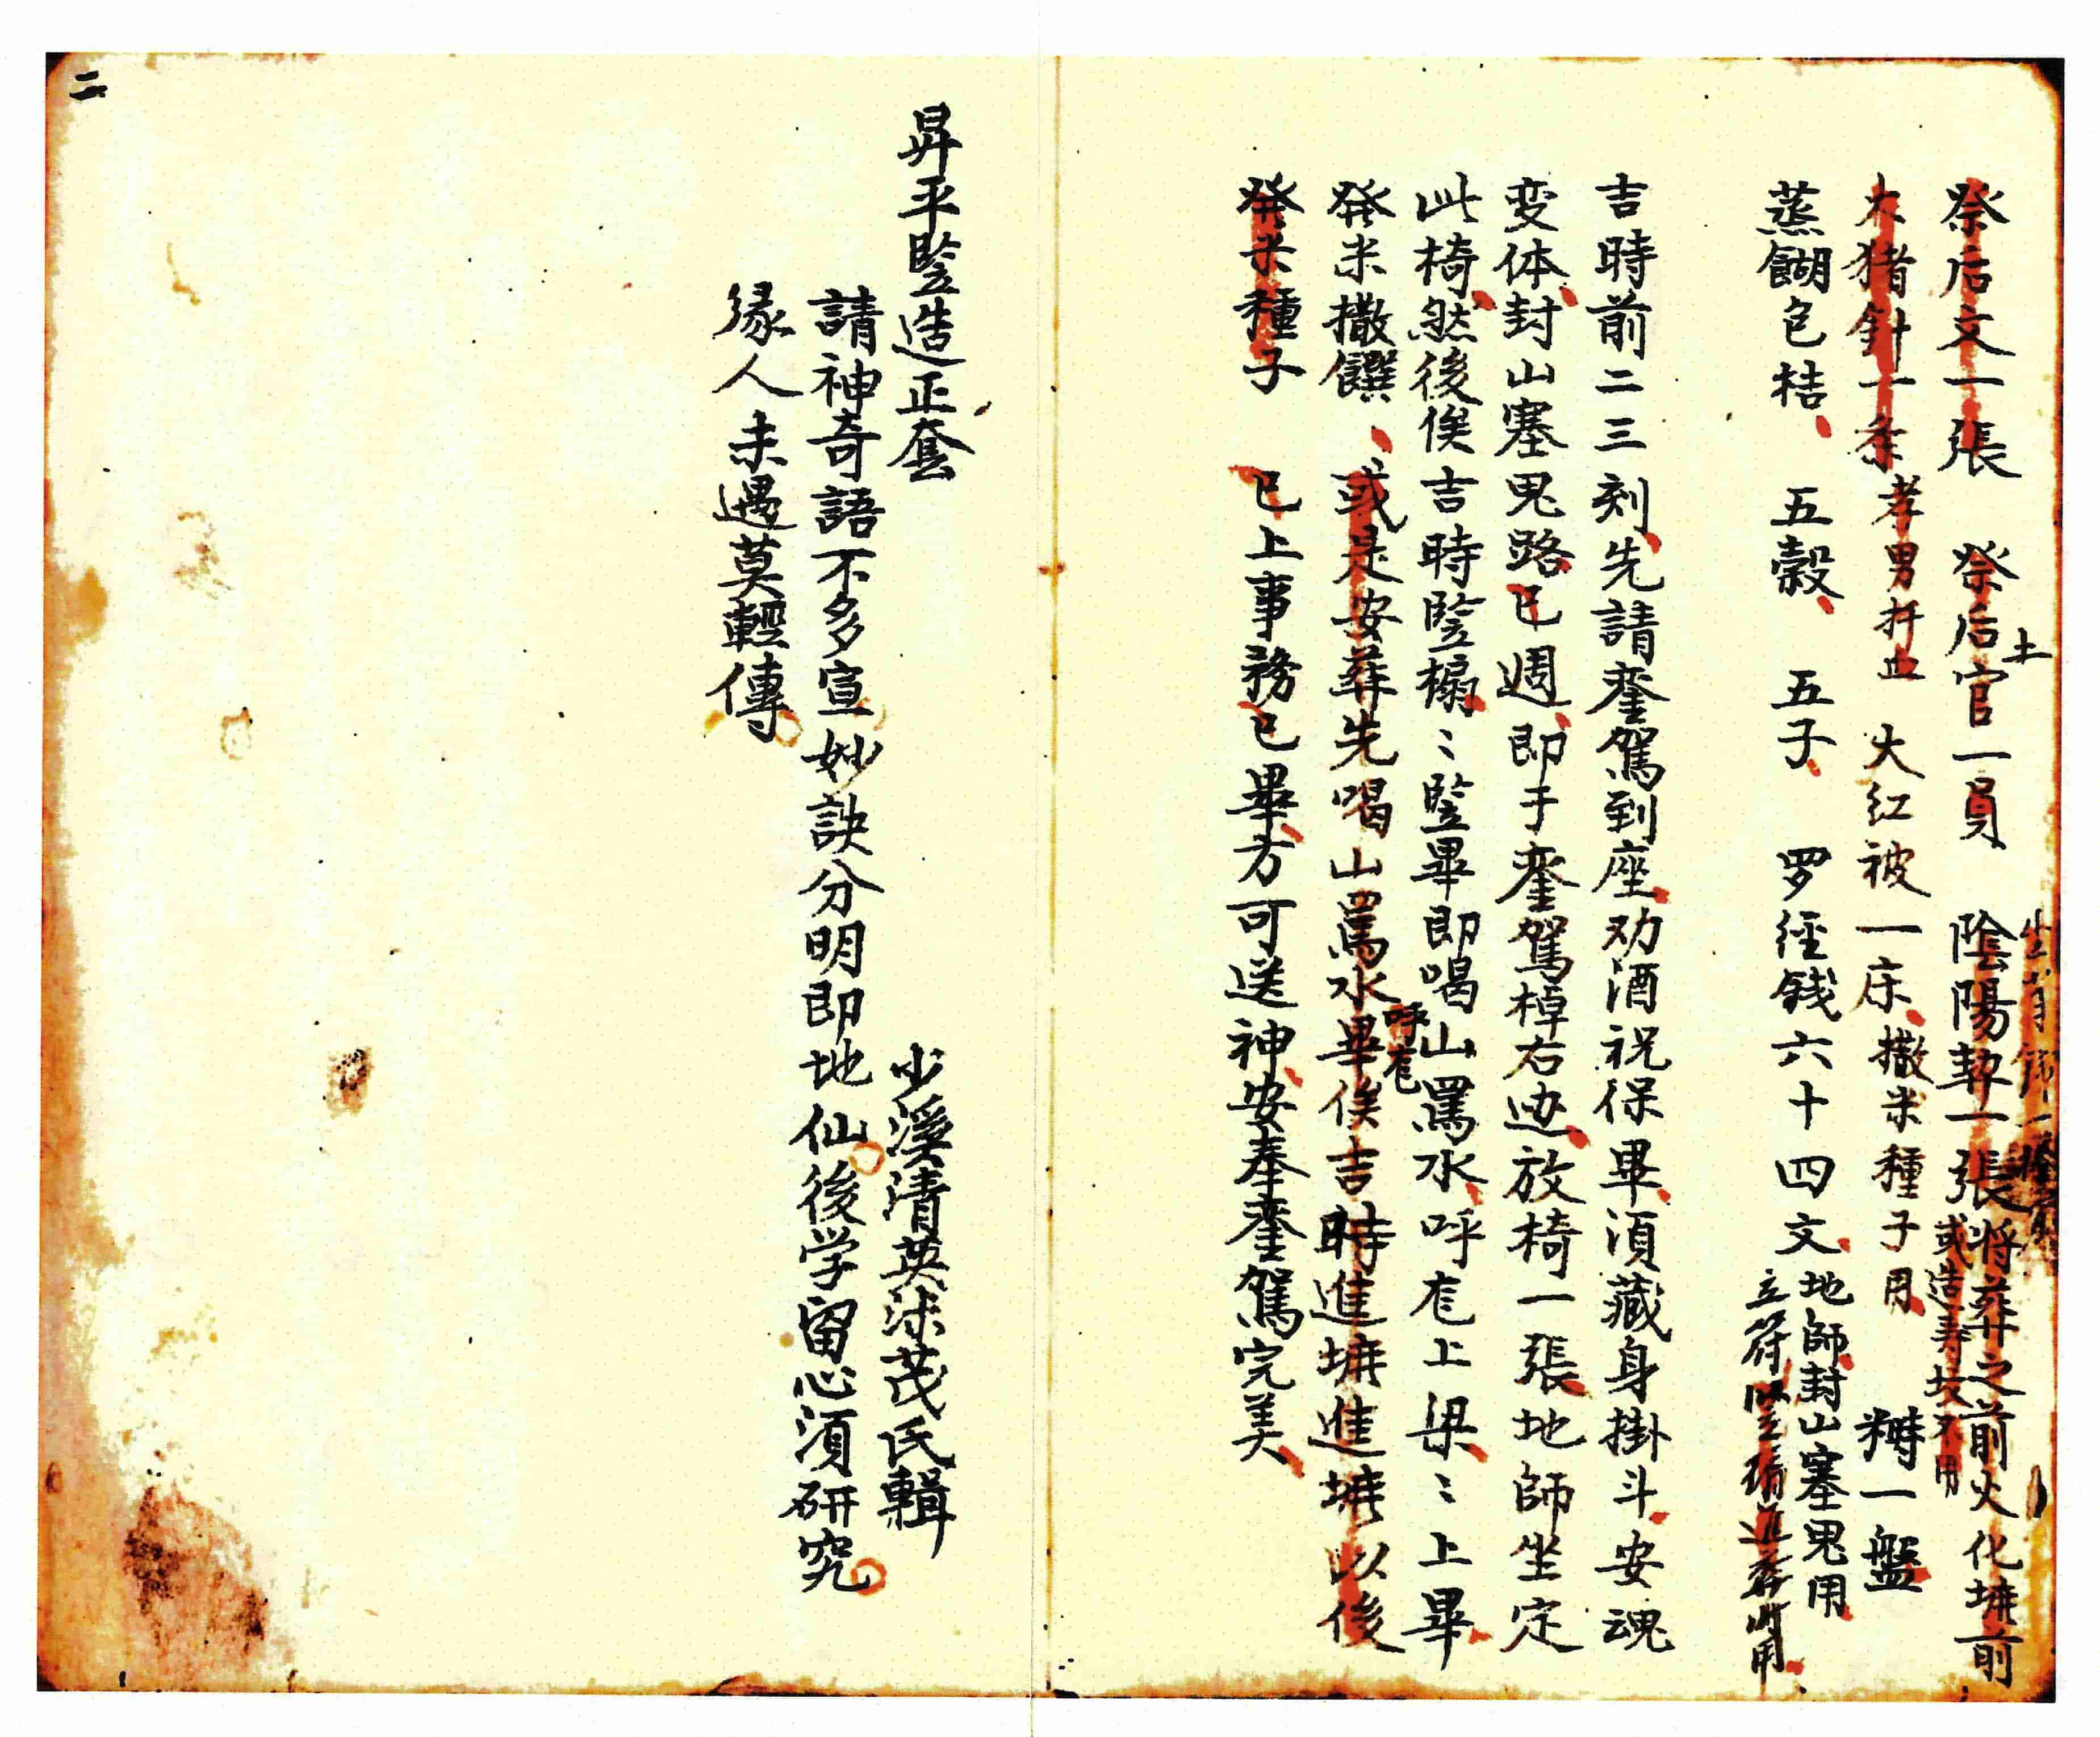 祭后文一張　祭后土官一員　陰陽契一張將葬之前火化壙前
或造寿坟不用
大猪針一条孝男扦血　大红被一床、撒米種子用　一盤
蒸餬包桔、　五穀、　五子、　罗經銭六十四文、地師封山塞鬼用
吉時前二三刻、先請鑾駕到座、劝酒祝保畢、須藏身掛斗、安魂
变体、封山塞鬼路、已週、即于鑾駕棹右边、放椅一張、地師坐定
此椅、然後俟吉時竪榻、〻竪畢即喝山罵水、呼龙上梁、〻上畢
呼龙
発米撒饌、或是安葬先喝山罵水畢俟吉時進壙進壙以後
発米種子　已上事務已畢、方可送神、安奉鑾駕完美、
二
昇平竪造正套　少溪清英沭茂氏輯
請神奇語不多宣妙訣分明即地仙後学留心須研究
缘人未遇莫輕傳